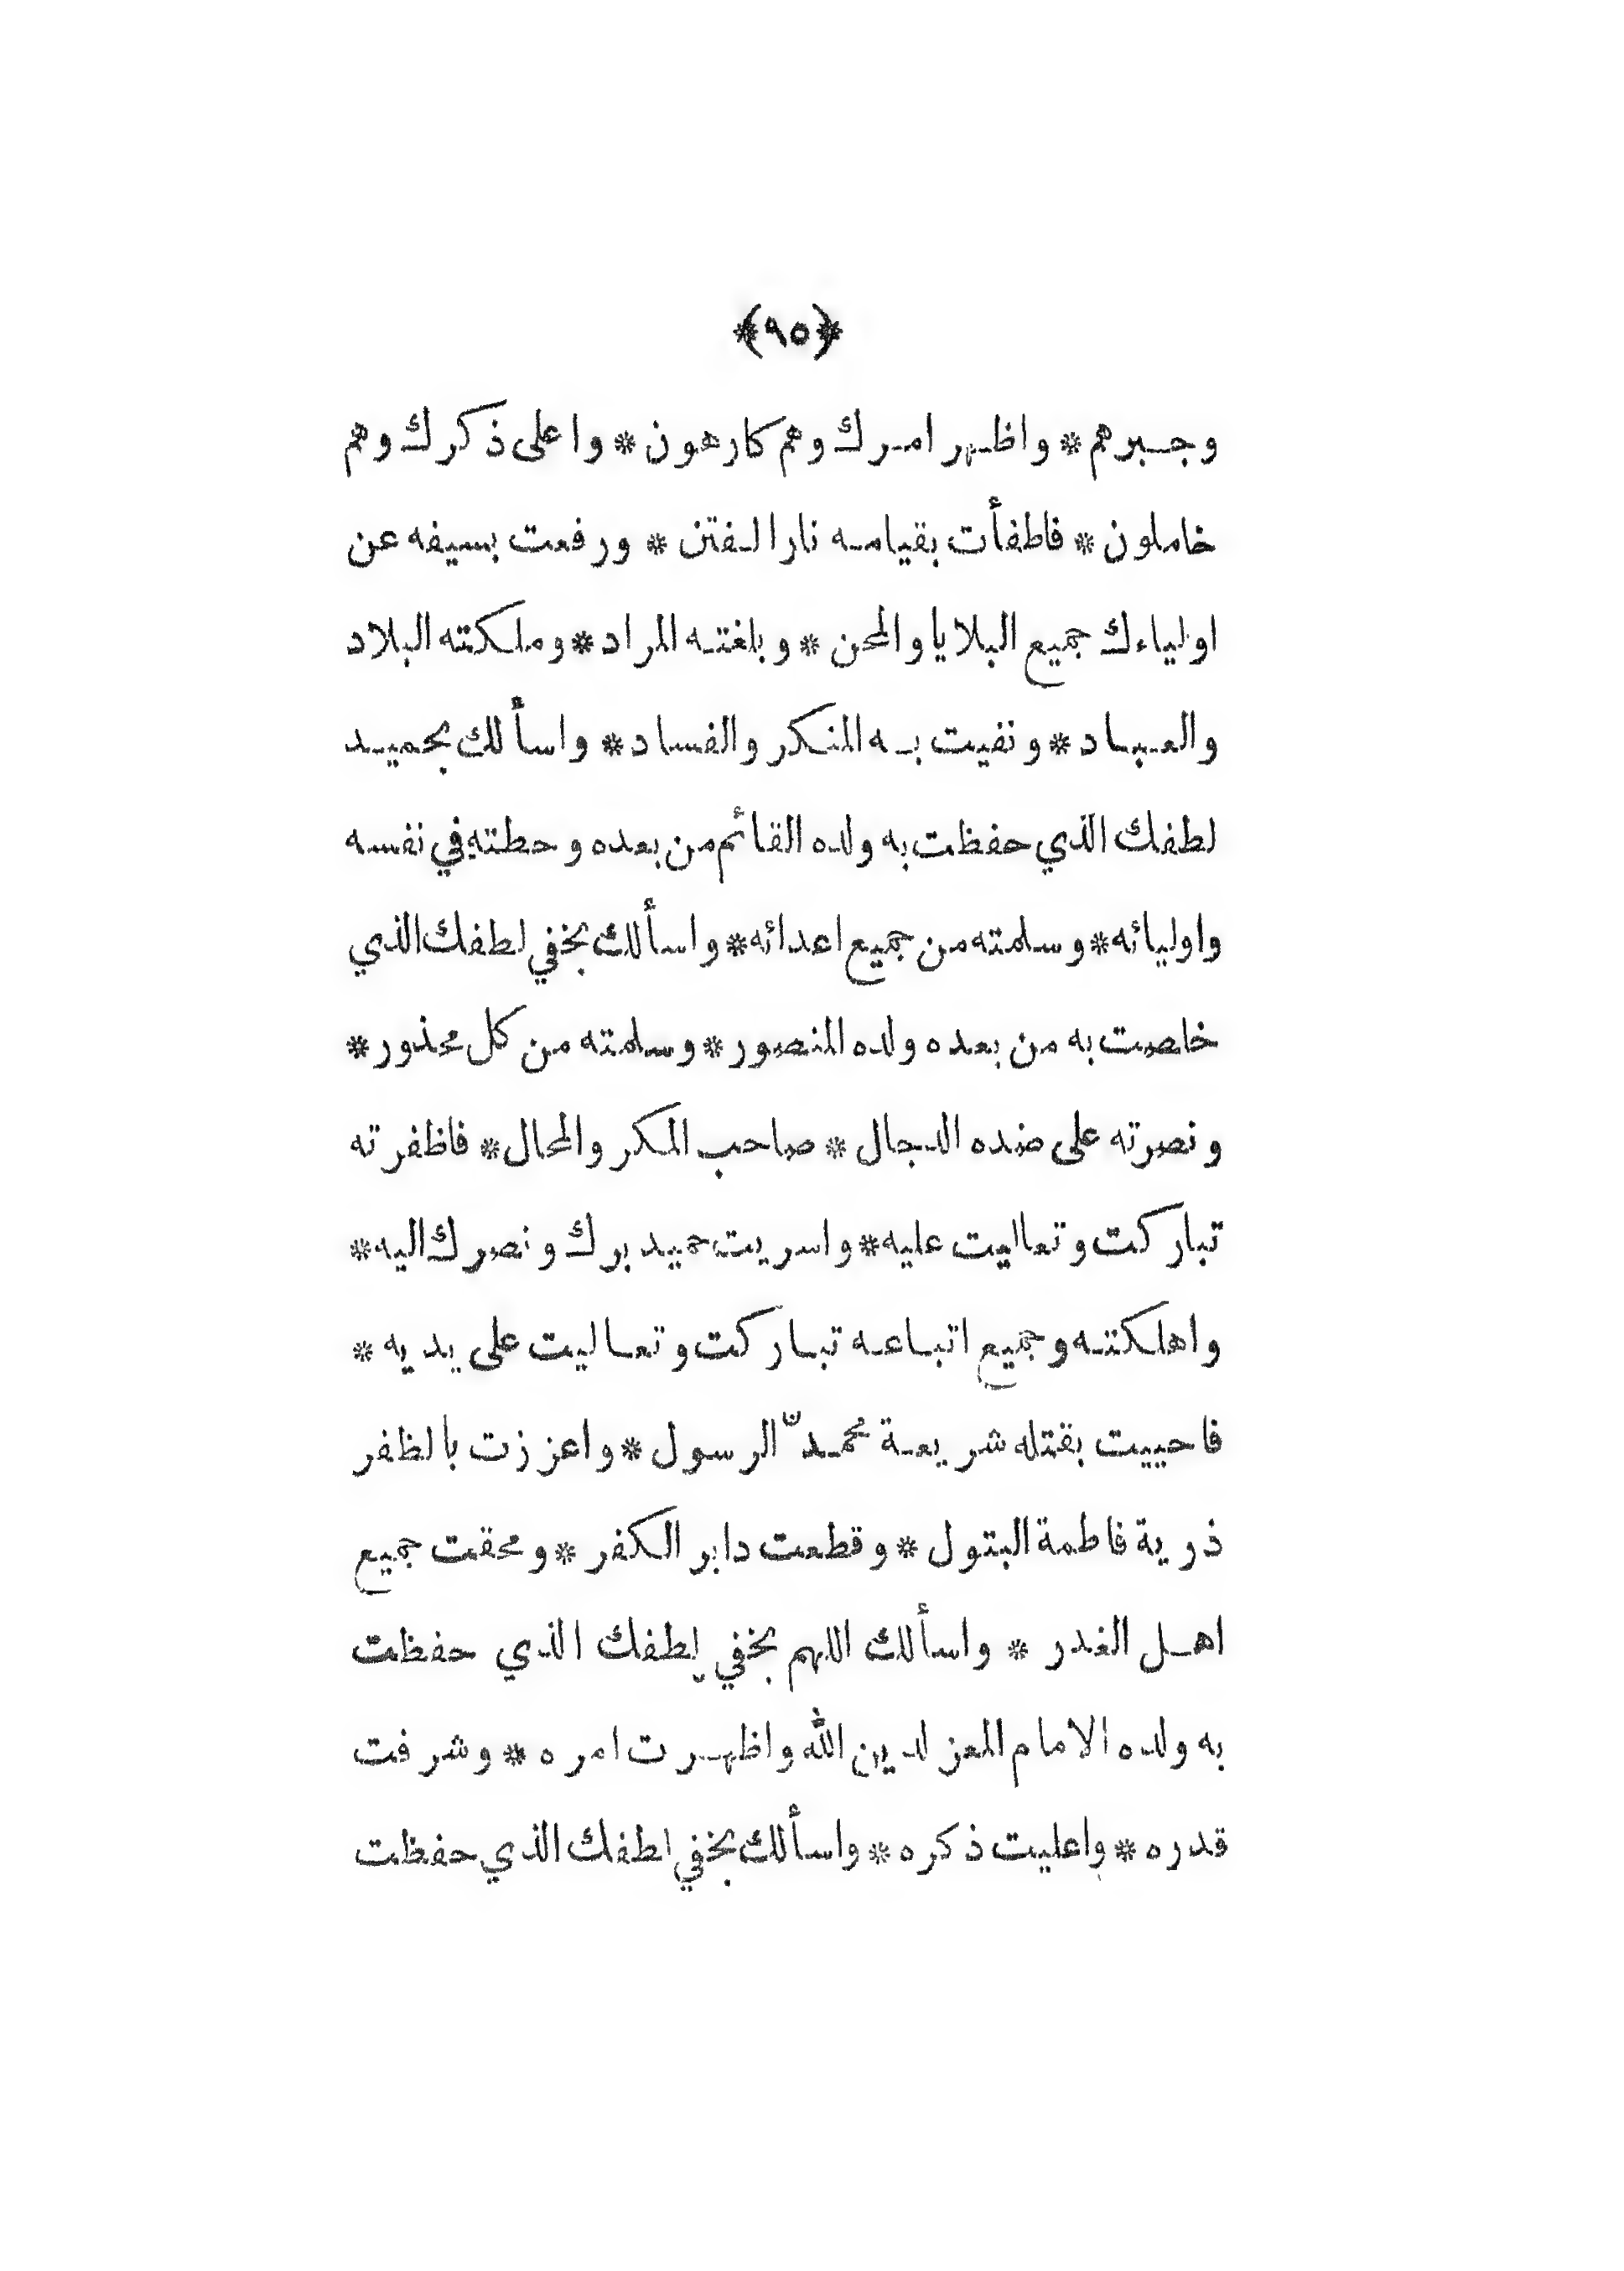 ﴿٩٥﴾
وجبرهم * واظهر امرك وهم كارهون * واعلى ذكرك وهم
خاملون * فاطفأت بقيامه نار الفتن * ورفعت بسيفه عن
اولياءك جميع البلايا والمحن * وبلغته المراد * وملكته البلاد
والعباد * ونفيت به المنكر والفساد * واسألك بحميد
لطفك الذي حفظت به ولده القائم من بعده وحطته في نفسه
واوليائه * وسلمته من جميع اعدائه * واسألك بخفي لطفك الذي
خاصت به من بعده ولده المنصور * وسلمته من كل محذور *
ونصرته على ضده الدجال * صاحب المكر والمحال * فاظفرته
تباركت وتعاليت عليه * واسريت حميد برك ونصرك اليه *
واهلكته وجميع اتباعه تباركت وتعاليت على يديه *
فاحييت بقتله شريعة محمدنّ الرسول * واعززت بالظفر
ذرية فاطمة البتول * وقطعت دابر الكفر * ومحقت جميع
اهل الغدر * واسألك اللهم بخفي لطفك الذي حفظت
به ولده الامام المعز لدين الله واظهرت امره * وشرفت
قدره * واعليت ذكره * واسألك بخفي لطفك الذي حفظت